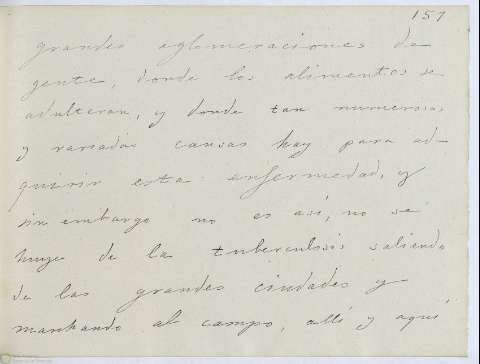 157
grandes aglomeraciones de
gente, donde los alimentos se
adulteran, y donde tan numerosas
y variadas causas hay para ad-
quirir esta enfermedad, y
sin embargo no es así, no se
huye de la tuberculosis saliendo
de las grandes ciudades y
marchando al campo, allí y aquí